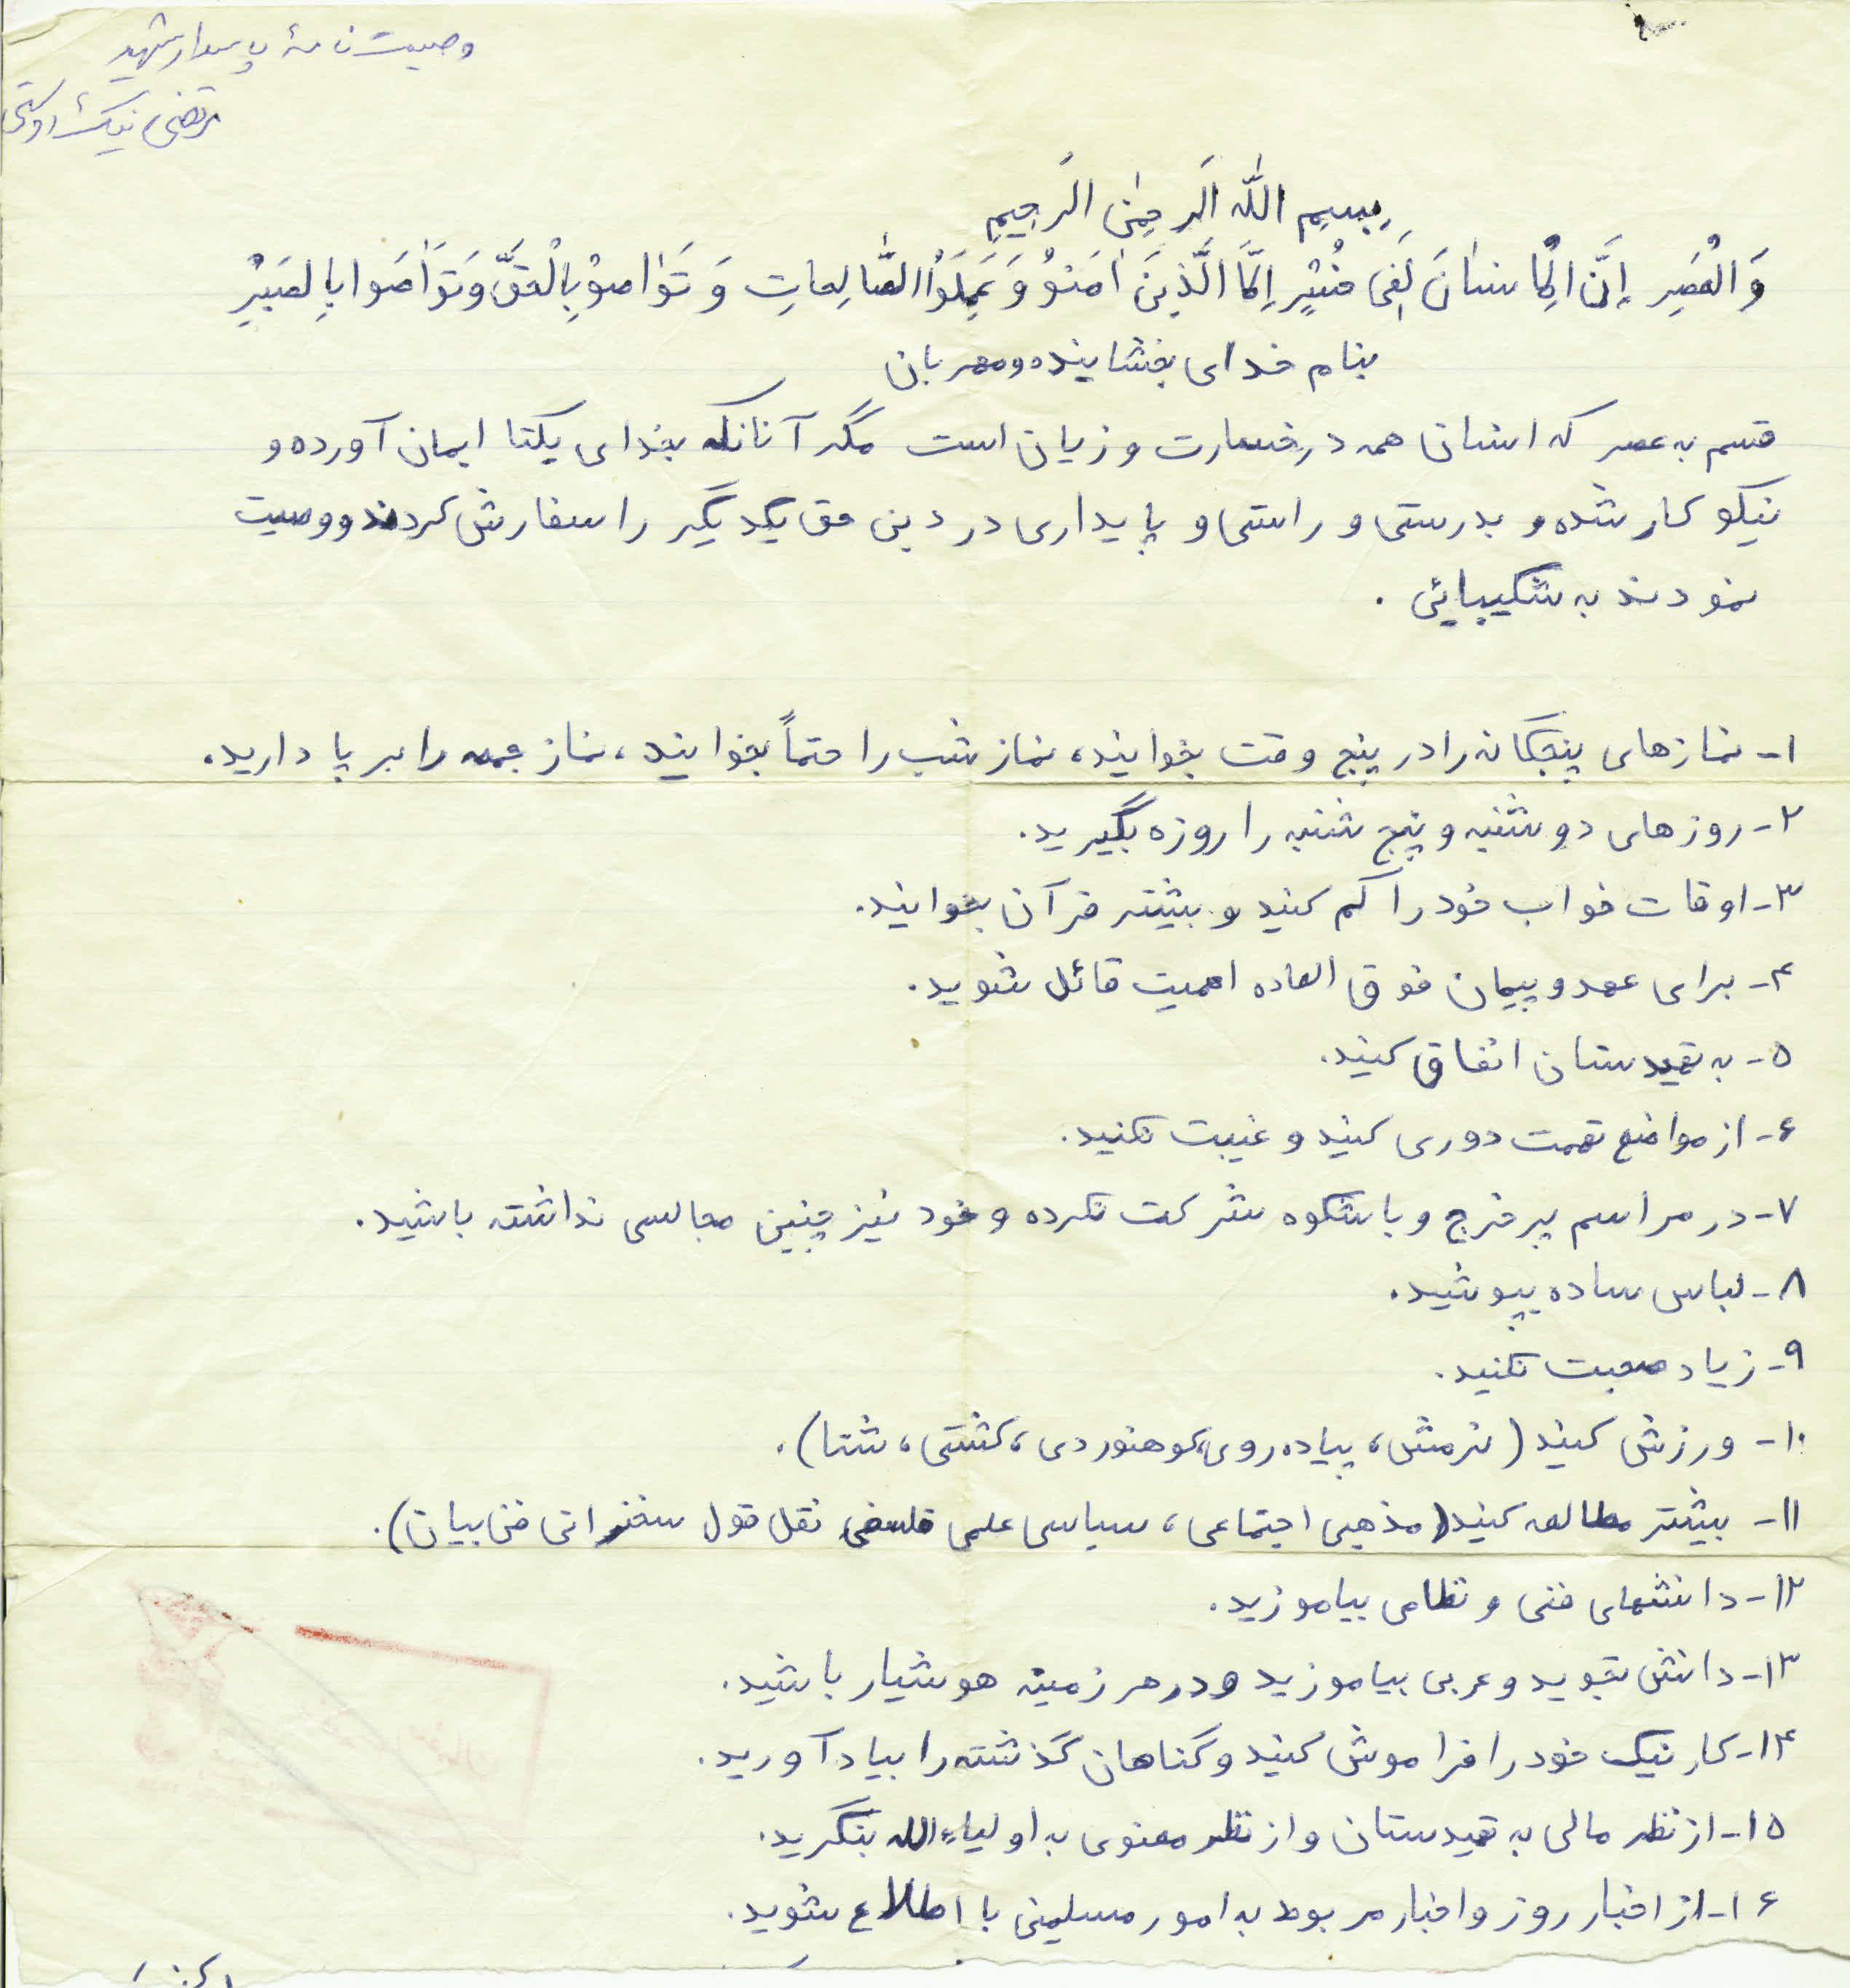 وصیت نامهٔ پاسدار شهید
مرتضی
بِسمِ اللّٰه اَلرحمٰنِ الرَحیمِ
وَ الْعَصرِ إنَّ الْاِنسٰانَ لَفی خُسْرٍ اِلَّا الَّذینَ اٰمَنوُ وَ عَمِلوُا الصّٰالِحاتِ وَ تَوٰاصوْ بِالْحَقَّ وَ تَوٰاصَوا بِالصَبْرِ
بنام خدای بخشاینده و مهربان
قسم به عصر که انسان همه در خسارت و زیان است مگر آنانکه بخدای یکتا ایمان آورده و
نیکو کار شده و بدرستی و راستی و پایداری در دین حق یکدیگر را سفارش کردند و وصیت
نمودند به شکیبائی .
۱- نمازهای پنجگانه را در پنج وقت بخوانید، نماز شب را حتماً بخوانید، نماز جمعه را بر پا دارید.
۲- روزهای دوشنبه و پنج شنبه را روزه بگیرید.
۳- اوقات خواب خود را کم کنید و بیشتر قرآن بخوانید.
۴- برای عهد و پیمان فوق العاده اهمیت قائل شوید.
۵- به تهیدستان انفاق کنید.
۶- از مواضع تهمت دوری کنید و غیبت نکنید.
۷- در مراسم پر خرج و باشکوه شرکت نکرده و خود نیز چنین مجالسی نداشته باشید.
۸- لباس ساده بپوشید.
۹- زیاد صحبت نکنید.
۱۰- ورزش کنید (نرمش، پیاده روی، کوهنوردی، کشتی، شنا).
۱۱- بیشتر مطالعه کنید (مذهبی اجتماعی، سیاسی علمی فلسفی نقل قول سخنرانی فن بیان).
۱۲- دانشهای فنی و نظامی بیاموزید.
۱۳- دانش تجوید و عربی بیاموزید و در هر زمینه هوشیار باشید.
۱۴- کار نیک خود را فراموش کنید و گناهان گذشته را بیاد آورید.
۱۵- از نظر مالی به تهیدستان و از نظر معنوی به اولیاء الله بنگرید.
۱۶- از اخبار روز و اخبار مربوط به امور مسلمین با اطلاع شوید.